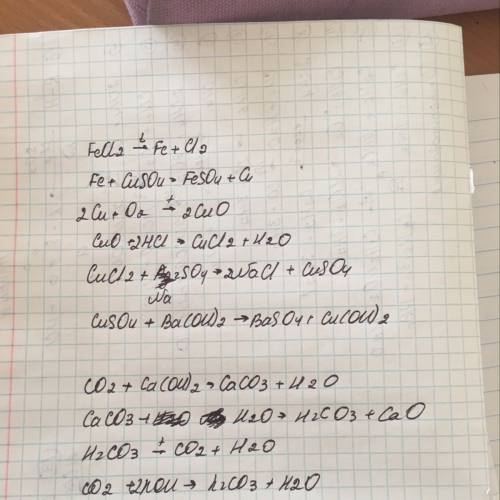 FeCl2 t→ Fe + Cl2
Fe + CuSO4 = FeSO4 + Cu
2Cu + O2 t→ 2CuO
CuO + 2HCl = CuCl2 + H2O
CuCl2 + Na2SO4 → 2NaCl + CuSO4
CuSO4 + Ba(OH)2 → BaSO4 + Cu(OH)2
CO2 + Ca(OH)2 → CaCO3 + H2O
CaCO3 + H2O → H2CO3 + CaO
H2CO3 t→ CO2 + H2O
CO2 + 2KOH → K2CO3 + H2O